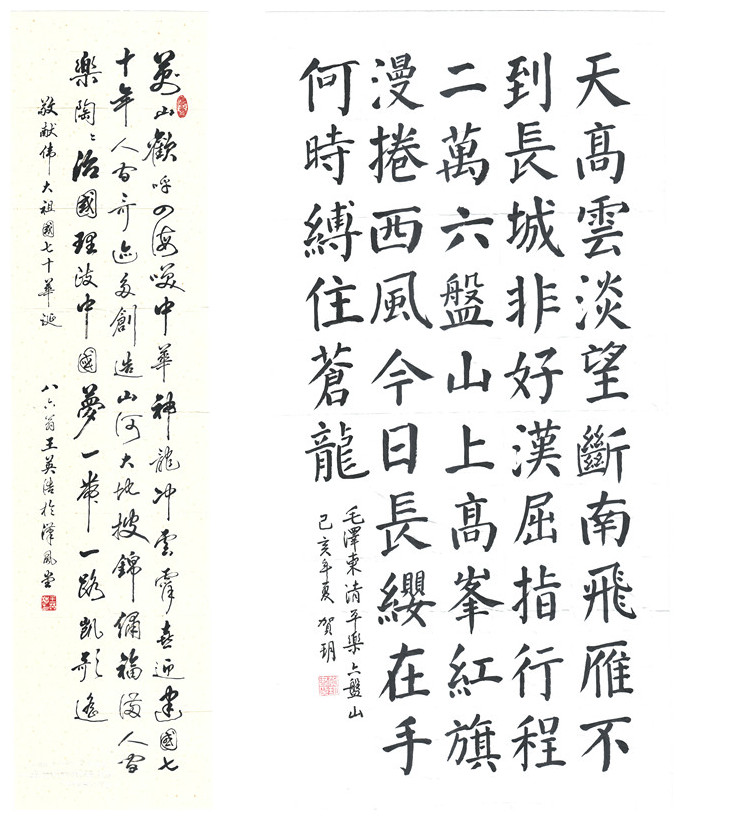 天高雲淡望斷南飛雁不
到長城非好漢屈指行程
二萬六盤山上高峯紅旗
漫捲西風今日長纓在手
何時縛住蒼龍
毛澤東清平樂六盤山
己亥年夏 賀玥
萬山歡呼四海笑中華神龍冲雲霄喜迎建國七
十年人间奇迹多創造山河大地披錦繡福滿人间
樂陶々治國理政中國夢一帶一路凱歌遙
敬献偉大祖國七十華誕
八六翁王英浩於漢風堂